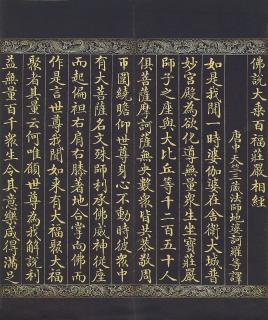 佛說大乘百福莊嚴相經
唐中天竺三藏法師地婆訶羅再譯
如是我聞一時婆伽婆在舍衛大城普
妙宮殿為欲化導無量眾生坐寶莊嚴
師子之座與大比丘等千二百五十人
俱菩薩摩訶薩無央數眾皆共恭敬周
帀圍繞瞻仰世尊身心不動時彼眾中
有大菩薩名文殊師利承佛威神從座
而起偏袒右肩右膝著地合掌向佛而
作是言世尊我聞如來有大福聚大福
聚者其量云何唯願世尊為我解說利
益無量百千眾生令其意樂咸得滿足